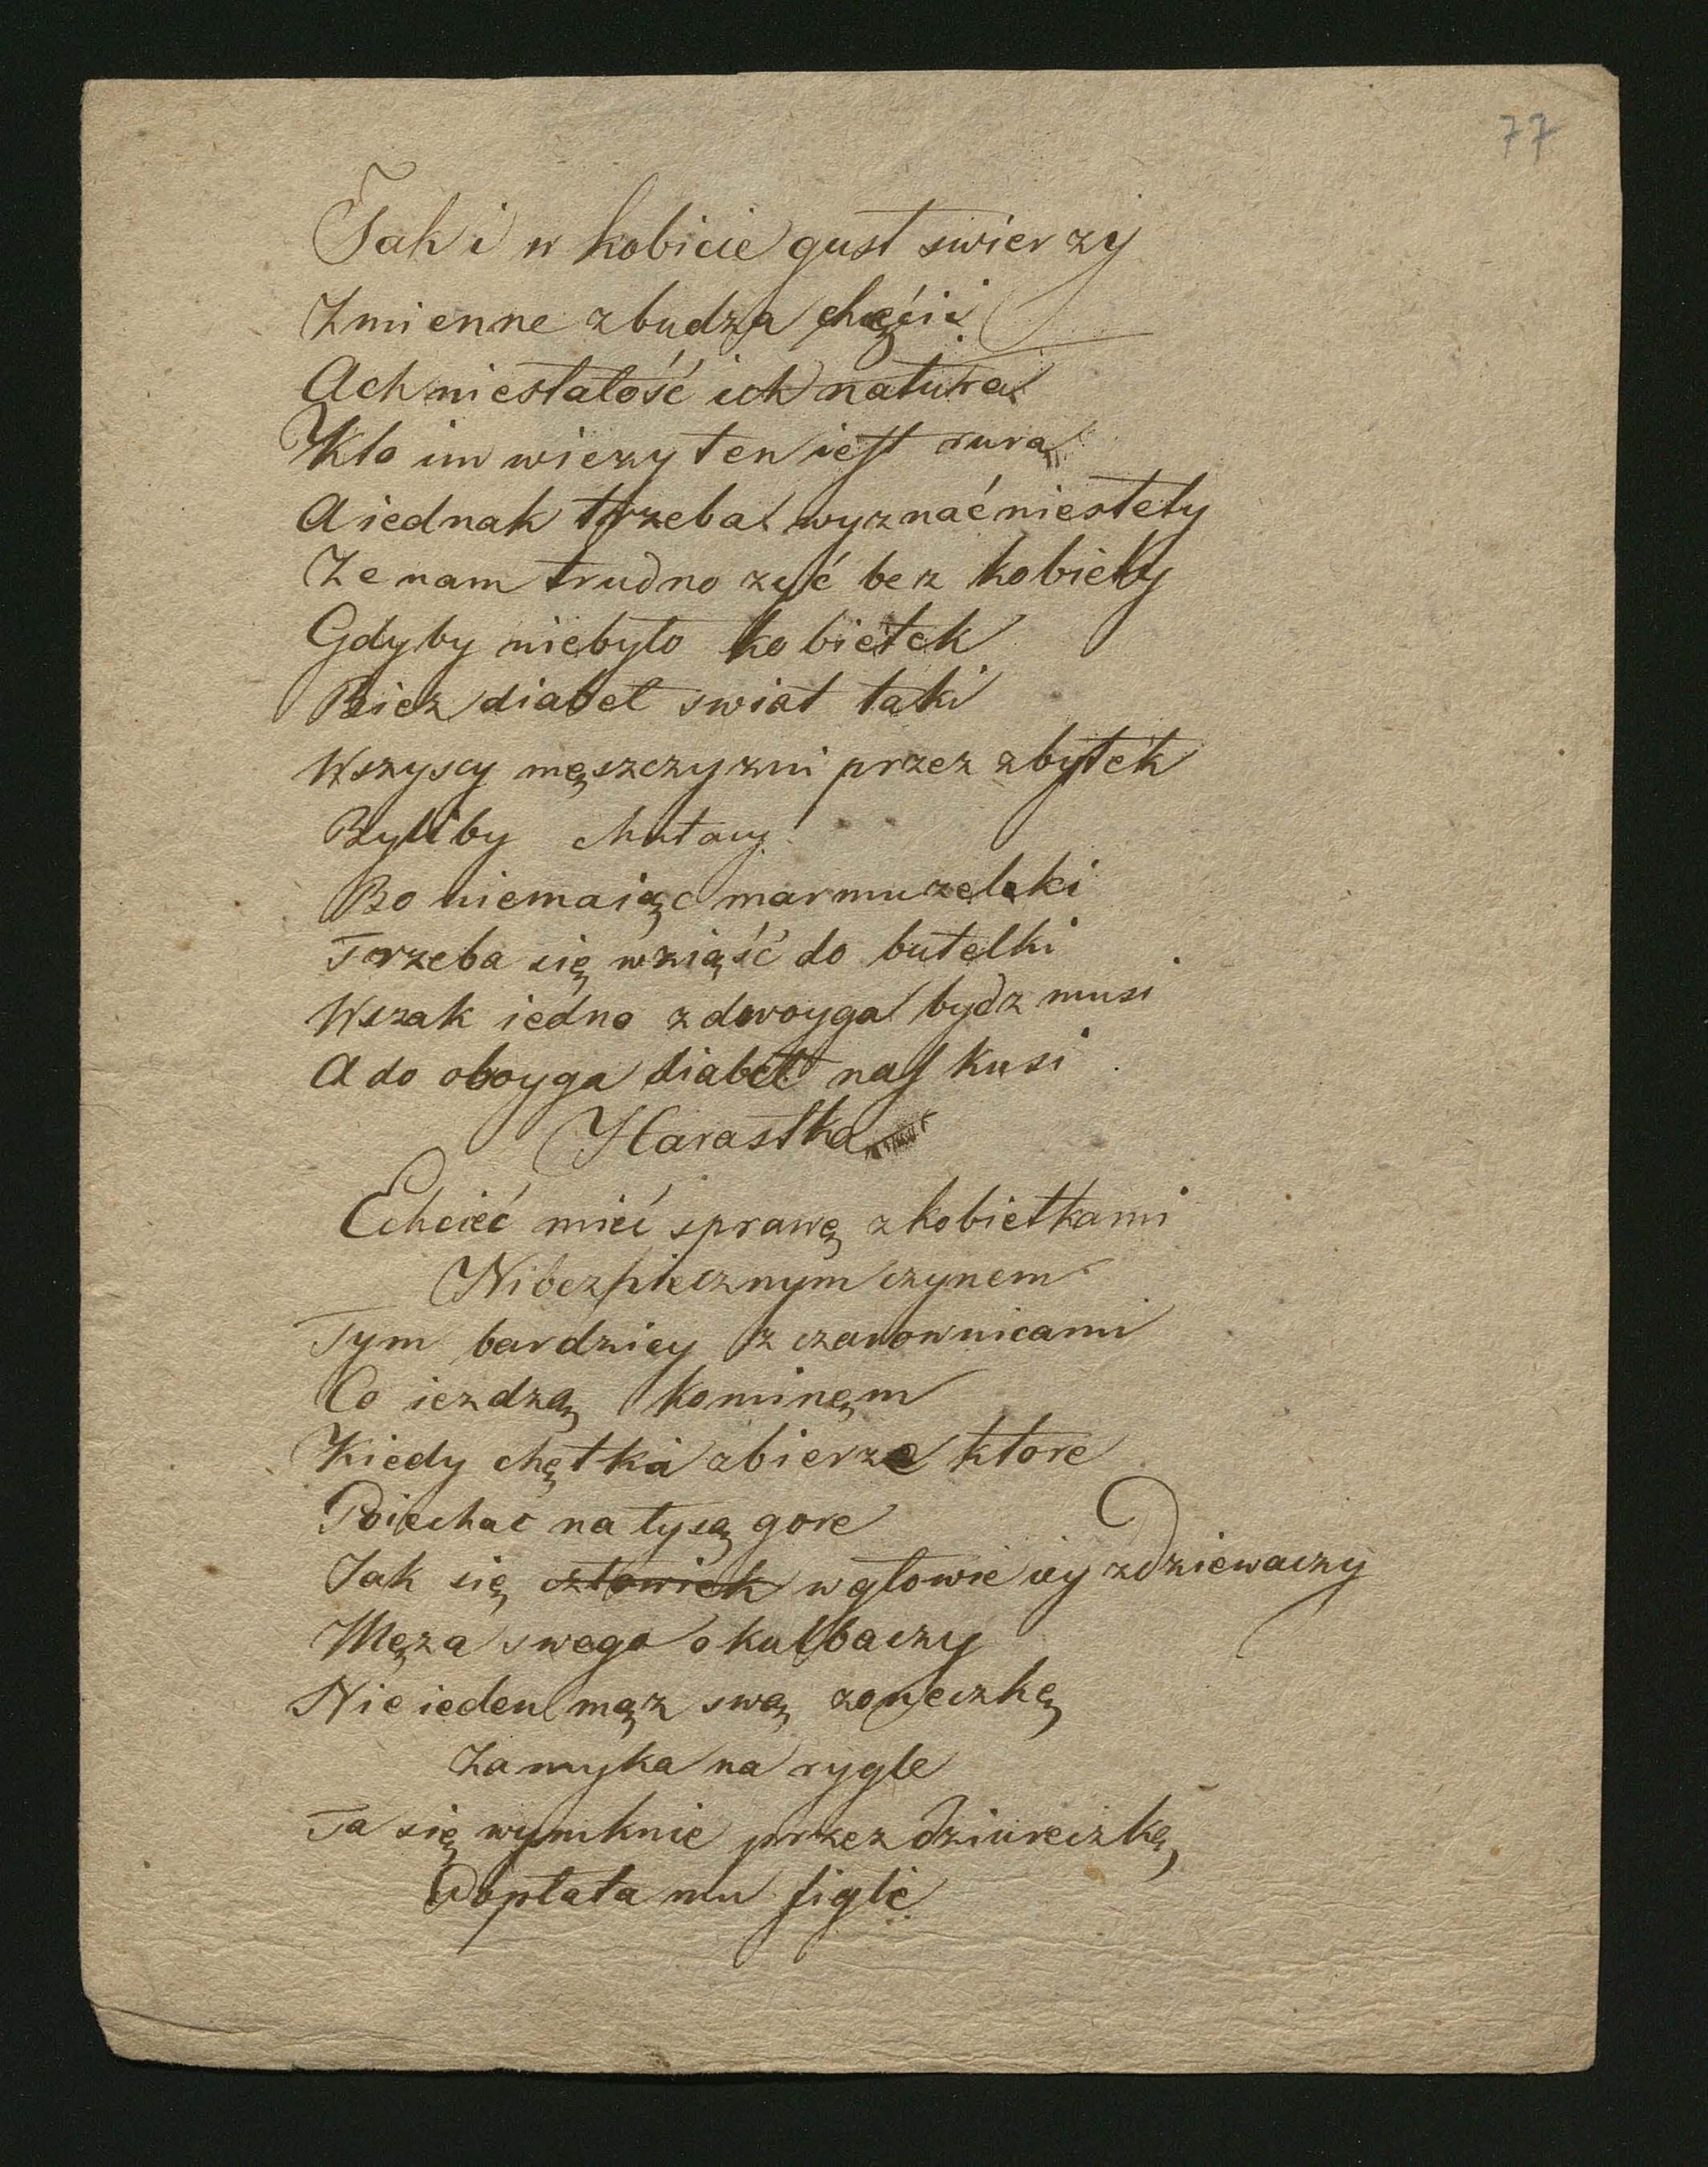 77
Tak i w kobicie gust swierzy
Zmienne zbudza chęćii
Ach niestałość ich natura
Kto im wierzy ten iest rurą
A iednak trzeba wyznać niestety
Ze nam trudno zyć bez kobiety
Gdyby niebyło kobietek
Bierz diabeł swiat taki
Wszyscy męszczyzni przez zbytek
Byliby chutacy
Bo niemaiąc marmuzelki
Trzeba się wziąść do butelki
Wszak iedno z dwoyga bydz musi
A do oboyga diabeł nas kusi
Harastka
Echcieć mieć sprawę z kobietkami
Nibezpiecznym czynem
Tym bardziey z czarownicami
Co iezdzą kominęm
Kiedy chętka zbierze ktore
Poiechac na łysą gore
Jak się człowiek w głowie iey zdziewaczy
Męza swego okulbaczy
Nie ieden mąz swą zoneczkę
Zamyka na rygle
Ta się wymknie przez dziureczkę
Wypłata mu figle